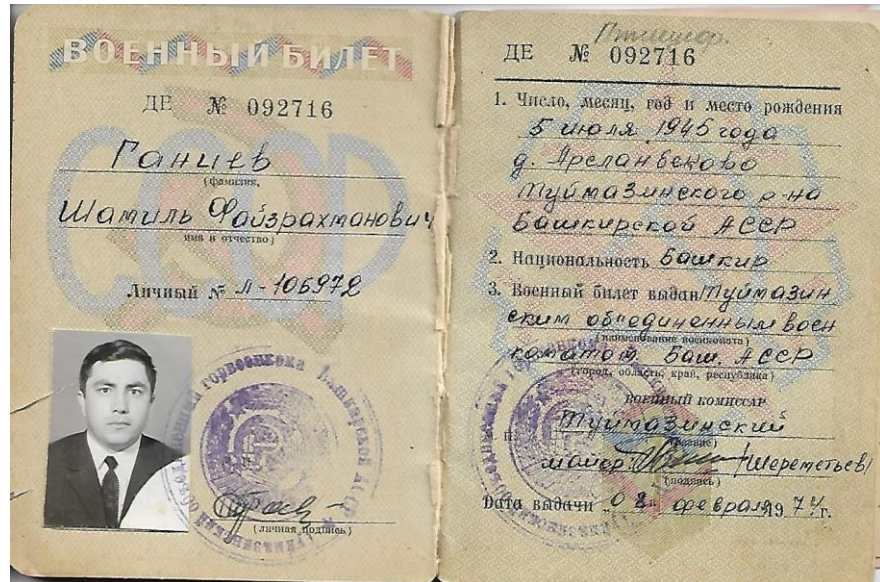 ВОЕННЫЙ БИЛЕТ
ДЕ № 092716
Ганиев
(фамилия,
Шамиль Файзрахманович
имя и отчество)
Личный № Л-106972
СССР
(личная подпись)
ДЕ № 092716
1. Число, месяц, год и место рождения
5 июля 1945 года
д. Арсланбеково
Туймазинского р-на
Башкирской АССР
2. Национальность башкир
3. Военный билет выдан Туймазин
ским объединенным воен
(наименование военкомата)
коматом Баш. АССР
(город, область, край, республика)
ВОЕННЫЙ КОМИССАР
Туймазинский
(звание)
майор /Шереметьев/
(подпись)
Дата выдачи „08" февраля 1974 г.